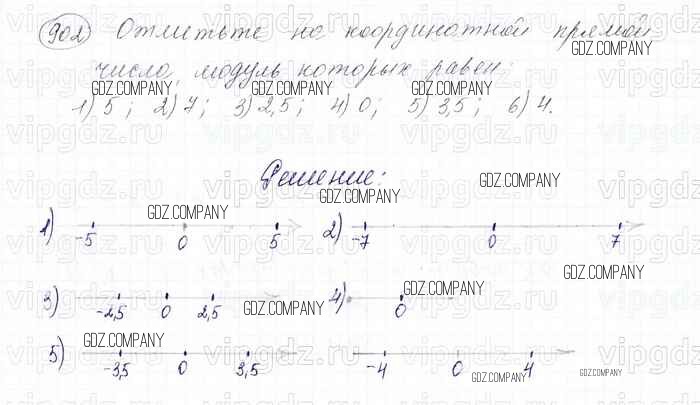 902 Отметьте на координатной прямой
числа, модуль которых равен:
1) 5; 2) 7; 3) 2,5; 4) 0; 5) 3,5; 6) 4.
Решение:
1) -5 0 5 2) -7 0 7
3) -2,5 0 2,5 4) 0
5) -3,5 0 3,5 -4 0 4
GDZ.COMPANY
GDZ.COMPANY
GDZ.COMPANY
GDZ.COMPANY
GDZ.COMPANY
GDZ.COMPANY
GDZ.COMPANY
GDZ.COMPANY
GDZ.COMPANY
GDZ.COMPANY
GDZ.COMPANY
GDZ.COMPANY
GDZ.COMPANY
vipgdz.ru